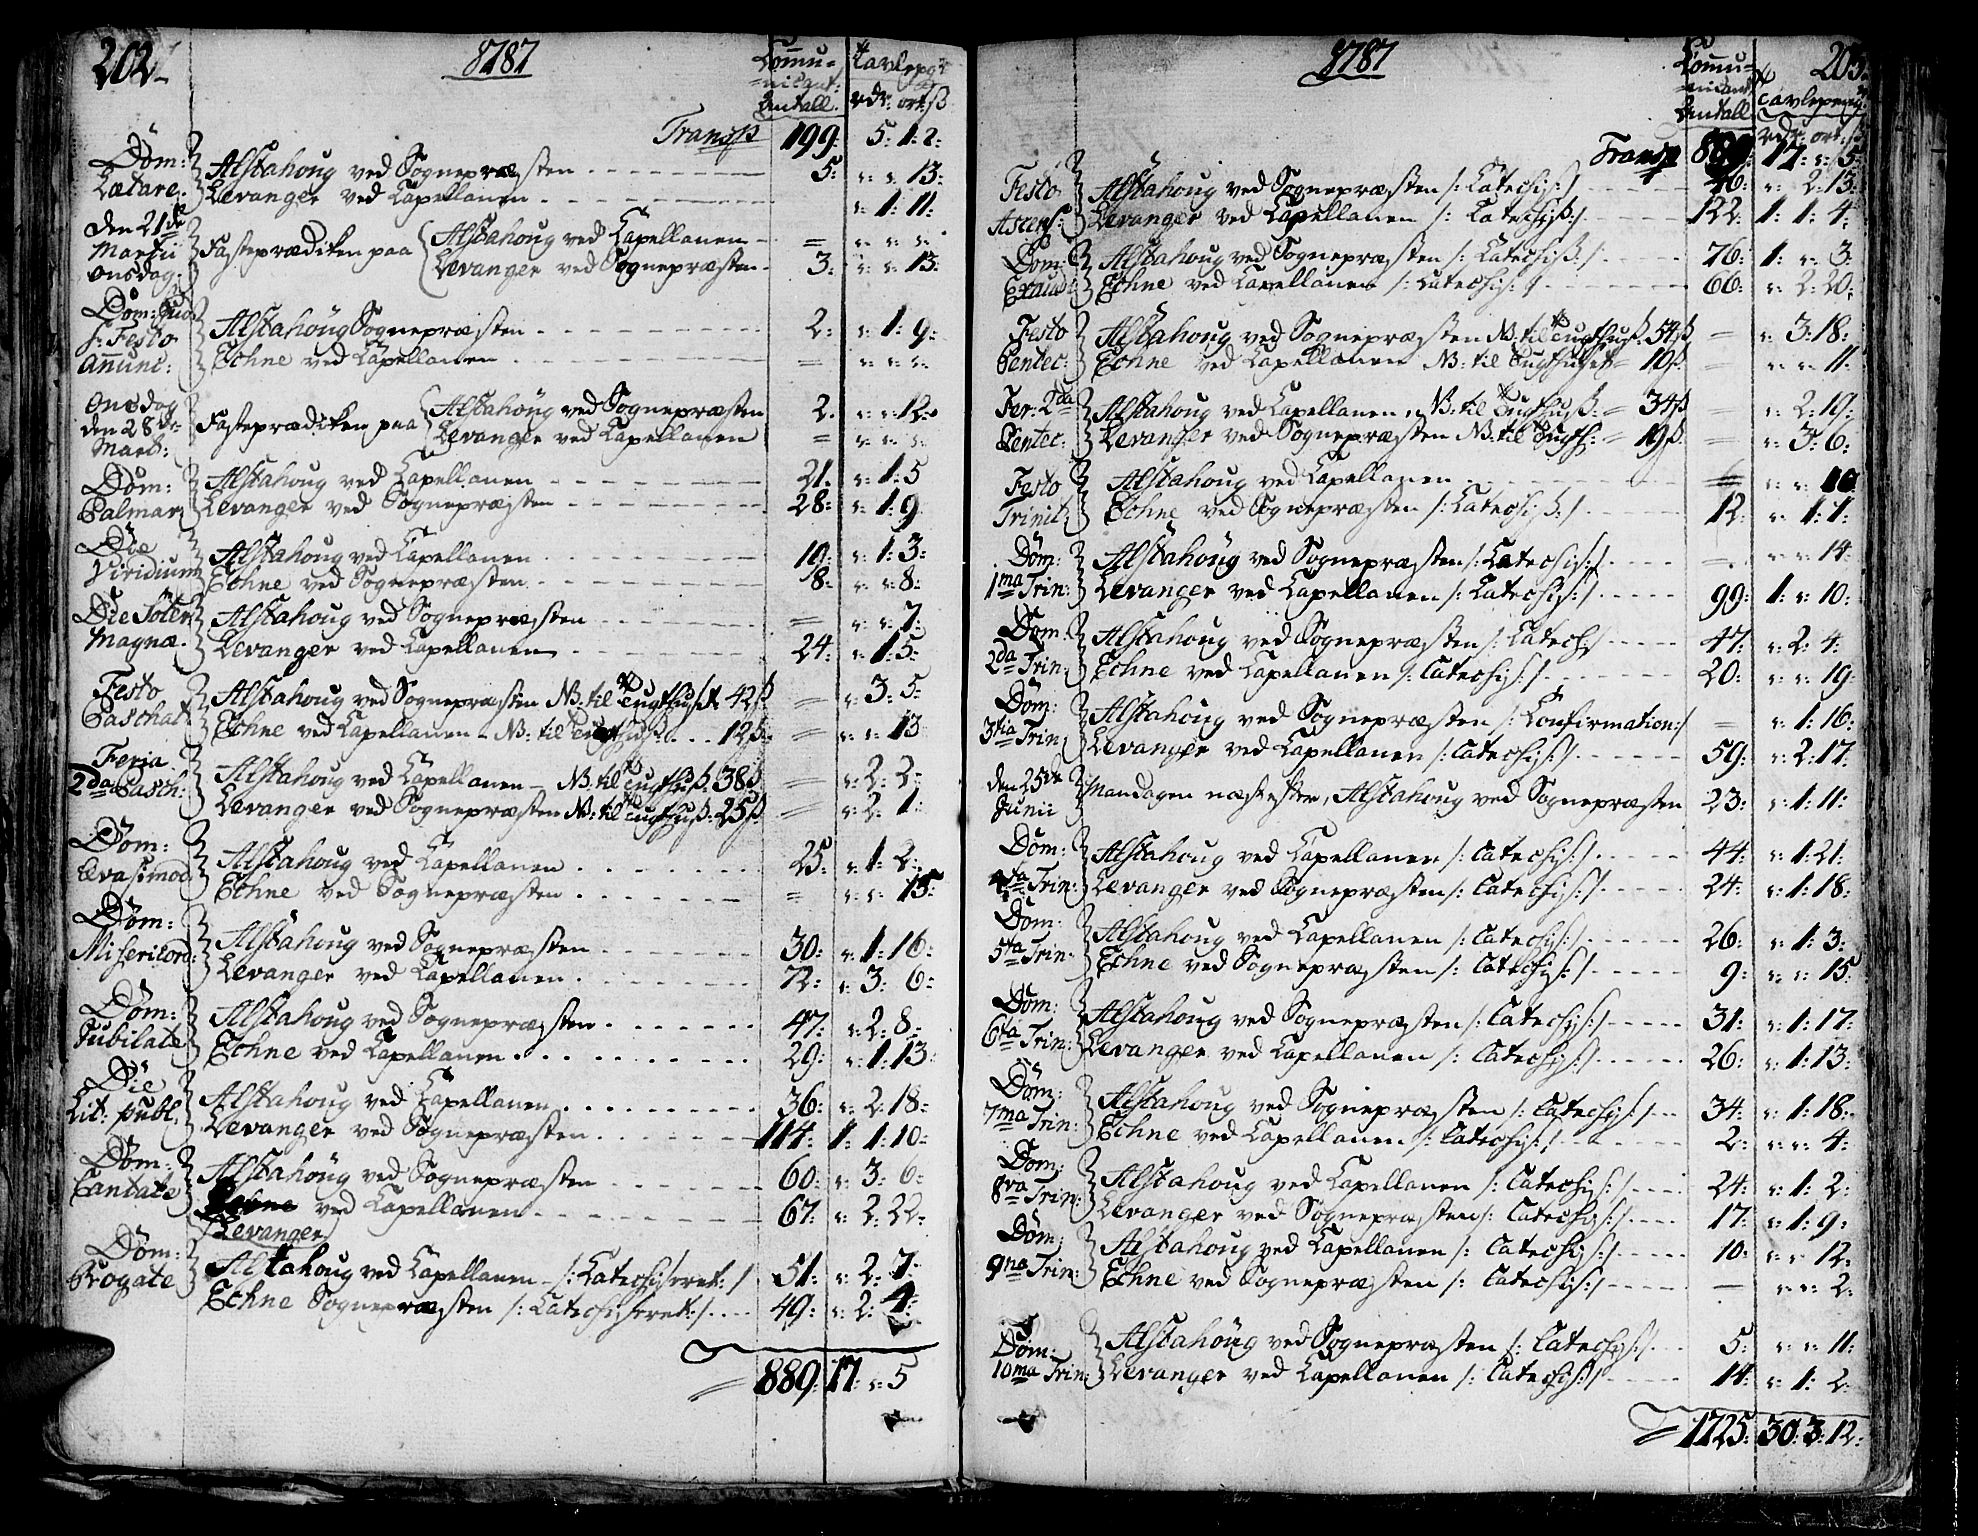 202
1787
Commu= Tavlepg:
=nicant:
Antall. rdr: ort: ß
Transp 199: 5: 1: 2:
Dom: Alstahoug ved Sognepræsten 5: „ „ 13:
Lætare. Levanger ved Capellanen „ 1: 11:
den 21de
Martii Fasteprædiken paa Alstahoug ved Capellanen = „ „ „
Onsdag. Levanger ved Sognepræsten 3: „ „ 13:
Dom: Jud:
f: Festo Alstahoug Sognepræsten 2: „ 1: 9:
Anunc: Echne ved Capellanen = „ „ „
Onsdag
den 28de Fasteprædiken paa Alstahoug ved Sognepræsten 2. „ „ 12:
Mart: Levanger ved Capellanen = „ „ „
Dom: Alstahoug ved Capellanen 21. „ 1: 5
Palmar: Levanger ved Sognepræsten 28: „ 1: 9
Die Alstahoug ved Capellanen 10: „ 1: 3:
Viridium Echne ved Sognepræsten 8: „ „ 8:
Die Solen Alstahoug ved Sognepræsten = „ „ 7:
Magnæ. Levanger ved Capellanen 24: „ 1: 5:
Festo Alstahoug ved Sognepræsten NB: til Tugthuset 42ß = „ 3: 5:
Paschat: Echne ved Capellanen NB: til Tugthuß: 12ß: = „ „ 13
Feria Alstahoug ved Capellanen NB: til Tugthuß: 38ß = „ 2: 2:
2da Pasch: Levanger ved Sognepræsten NB: til Tugthuß: 25ß: = „ 2: 1:
Dom: Alstahoug ved Capellanen 25: „ 1: 2:
Qvasimod: Echne ved Sognepræsten = „ „ 15:
Dom: Alstahoug ved Sognepræsten 30: „ 1: 16:
Misericord: Levanger ved Capellanen 72: „ 3: 6:
Dom: Alstahoug ved Sognepræsten 47: „ 2: 8:
Jubilate Echne ved Capellanen 29: „ 1: 13:
Die Alstahoug ved Capellanen 36: „ 2: 18:
Lit: publ: Levanger ved Sognepræsten 114: 1: 1: 10:
Dom: Alstahoug ved Sognepræsten 60: „ 3: 6:
Cantate Echne ved Capellanen 67: „ 2: 22:
Levanger
Dom: Alstahoug ved Capellanen /: Catechiseret: / 51: „ 2: 7:
Rogate Echne Sognepræsten /: Catechiseret: / 49: „ 2: 4:
= 889: 17: „ 5
1787
203
Commu=
=nicant Tavlepeng:
Antall rdr: ort: ß
Transp 889: 17: „ 5:
Festo Alstahoug ved Sognepræsten /: Catechis: / 46: „ 2: 13:
Ascens: Levanger ved Capellanen /: Catechiß: / 122: 1: 1: 4:
Dom: Alstahoug ved Sognepræsten /: Catechiß: / 76: 1: „ 3:
Exaudi: Echne ved Capellanen /: Catechis: / 66: „ 2: 20:
Festo Alstahoug ved Sognepræsten NB: til Tugthuß: 54ß = „ 3: 18:
Pentec: Echne ved Capellanen NB: til Tugthuset = 10ß: = „ „ 11:
Fer: 2da Alstahoug ved Capellanen, NB: til Tugthuß: = 34ß = „ 2: 19:
Pentec: Levanger ved Sognepræsten NB: til Tugth: = 19ß: = „ 3: 6:
Festo Alstahoug ved Capellanen „ „ 10
Trinit: Echne ved Sognepræsten /: Catechiß: / 12: „ 1: 1:
Dom: Alstahoug ved Sognepræsten /: Catechis: / = „ „ 14:
1ma Trin: Levanger ved Capellanen /: Catechis: / 99: 1: „ 10:
Dom: Alstahoug ved Sognepræsten /: Catech: / 47: „ 2: 4:
2da Trin: Echne ved Capellanen /: Catechis: / 20: „ „ 19:
Dom: Alstahoug ved Sognepræsten /: Confirmation: / = „ 1: 16:
3tia Trin Levanger ved Capellanen /: Catechis: / 59: „ 2: 17:
den 25de Mandagen næstefter, Alstahoug ved Sognepræsten 23: „ 1: 11:
Junii
Dom: Alstahoug ved Capellanen /: Catechis: / 44: „ 1: 21:
4ta Trin: Levanger ved Sognepræsten /: Catechis: / 24: „ 1: 18:
Dom: Alstahoug ved Capellanen /: Catechis: / 26: „ 1: 3:
5ta Trin: Echne ved Sognepræsten /: Catechis: / 9: „ „ 15
Dom: Alstahoug ved Sognepræsten /: Catechis: / 31: „ 1: 17:
6ta Trin: Levanger ved Capellanen /: Catechis: / 26: „ 1: 13:
Dom: Alstahoug ved Sognepræsten /: Catechis: / 34: „ 1: 18:
7ma Trin: Echne ved Capellanen /: Catechis: / 2: „ „ 4:
Dom: Alstahoug ved Capellanen /: Catechis: / 24: „ 1: 2:
8va Trin: Levanger ved Sognepræsten /: Catechis: / 17: „ 1: 9:
Dom: Alstahoug ved Capellanen /: Catechis: / 10: „ „ 12:
9na Trin: Echne ved Sognepræsten /: Catechis: / — „ „ 2:
Dom: Alstahoug ved Sognepræsten /: Catechis: / 5: „ „ 11:
10ma Trin: Levanger ved Capellanen /: Catechis: / 14: „ 1: 2:
= 1725: 30: 3: 12: